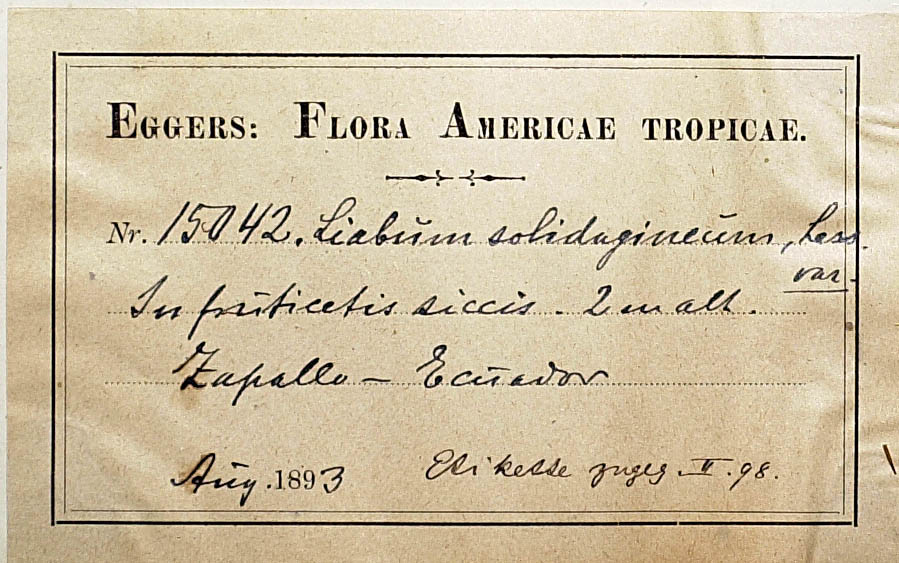 EGGERS: FLORA AMERICAE TROPICAE.
Nr. 15042. Liabum solidagineum, Less.
var.
In fruticetis siccis. 2 m alt.
Zapallo – Ecuador
Aug. 1893 Etikette zugeg. II. 98.